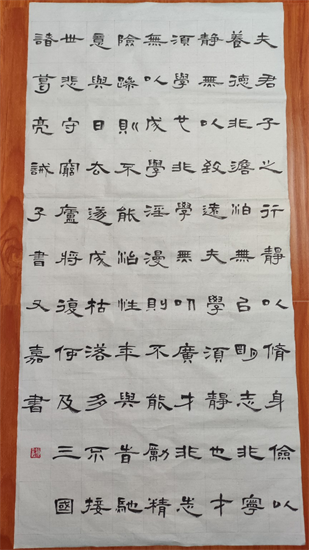 夫君子之行靜以脩身儉以
養德非澹泊無以明志非寧
靜無以致遠夫學須靜也才
須學也非學無以廣才非志
無以成學淫漫則不能勵精
險躁則不能治性年與旹馳
意與日去遂成枯落多不接
世悲守窮廬將復何及三國
諸葛亮誡子書又嘉書